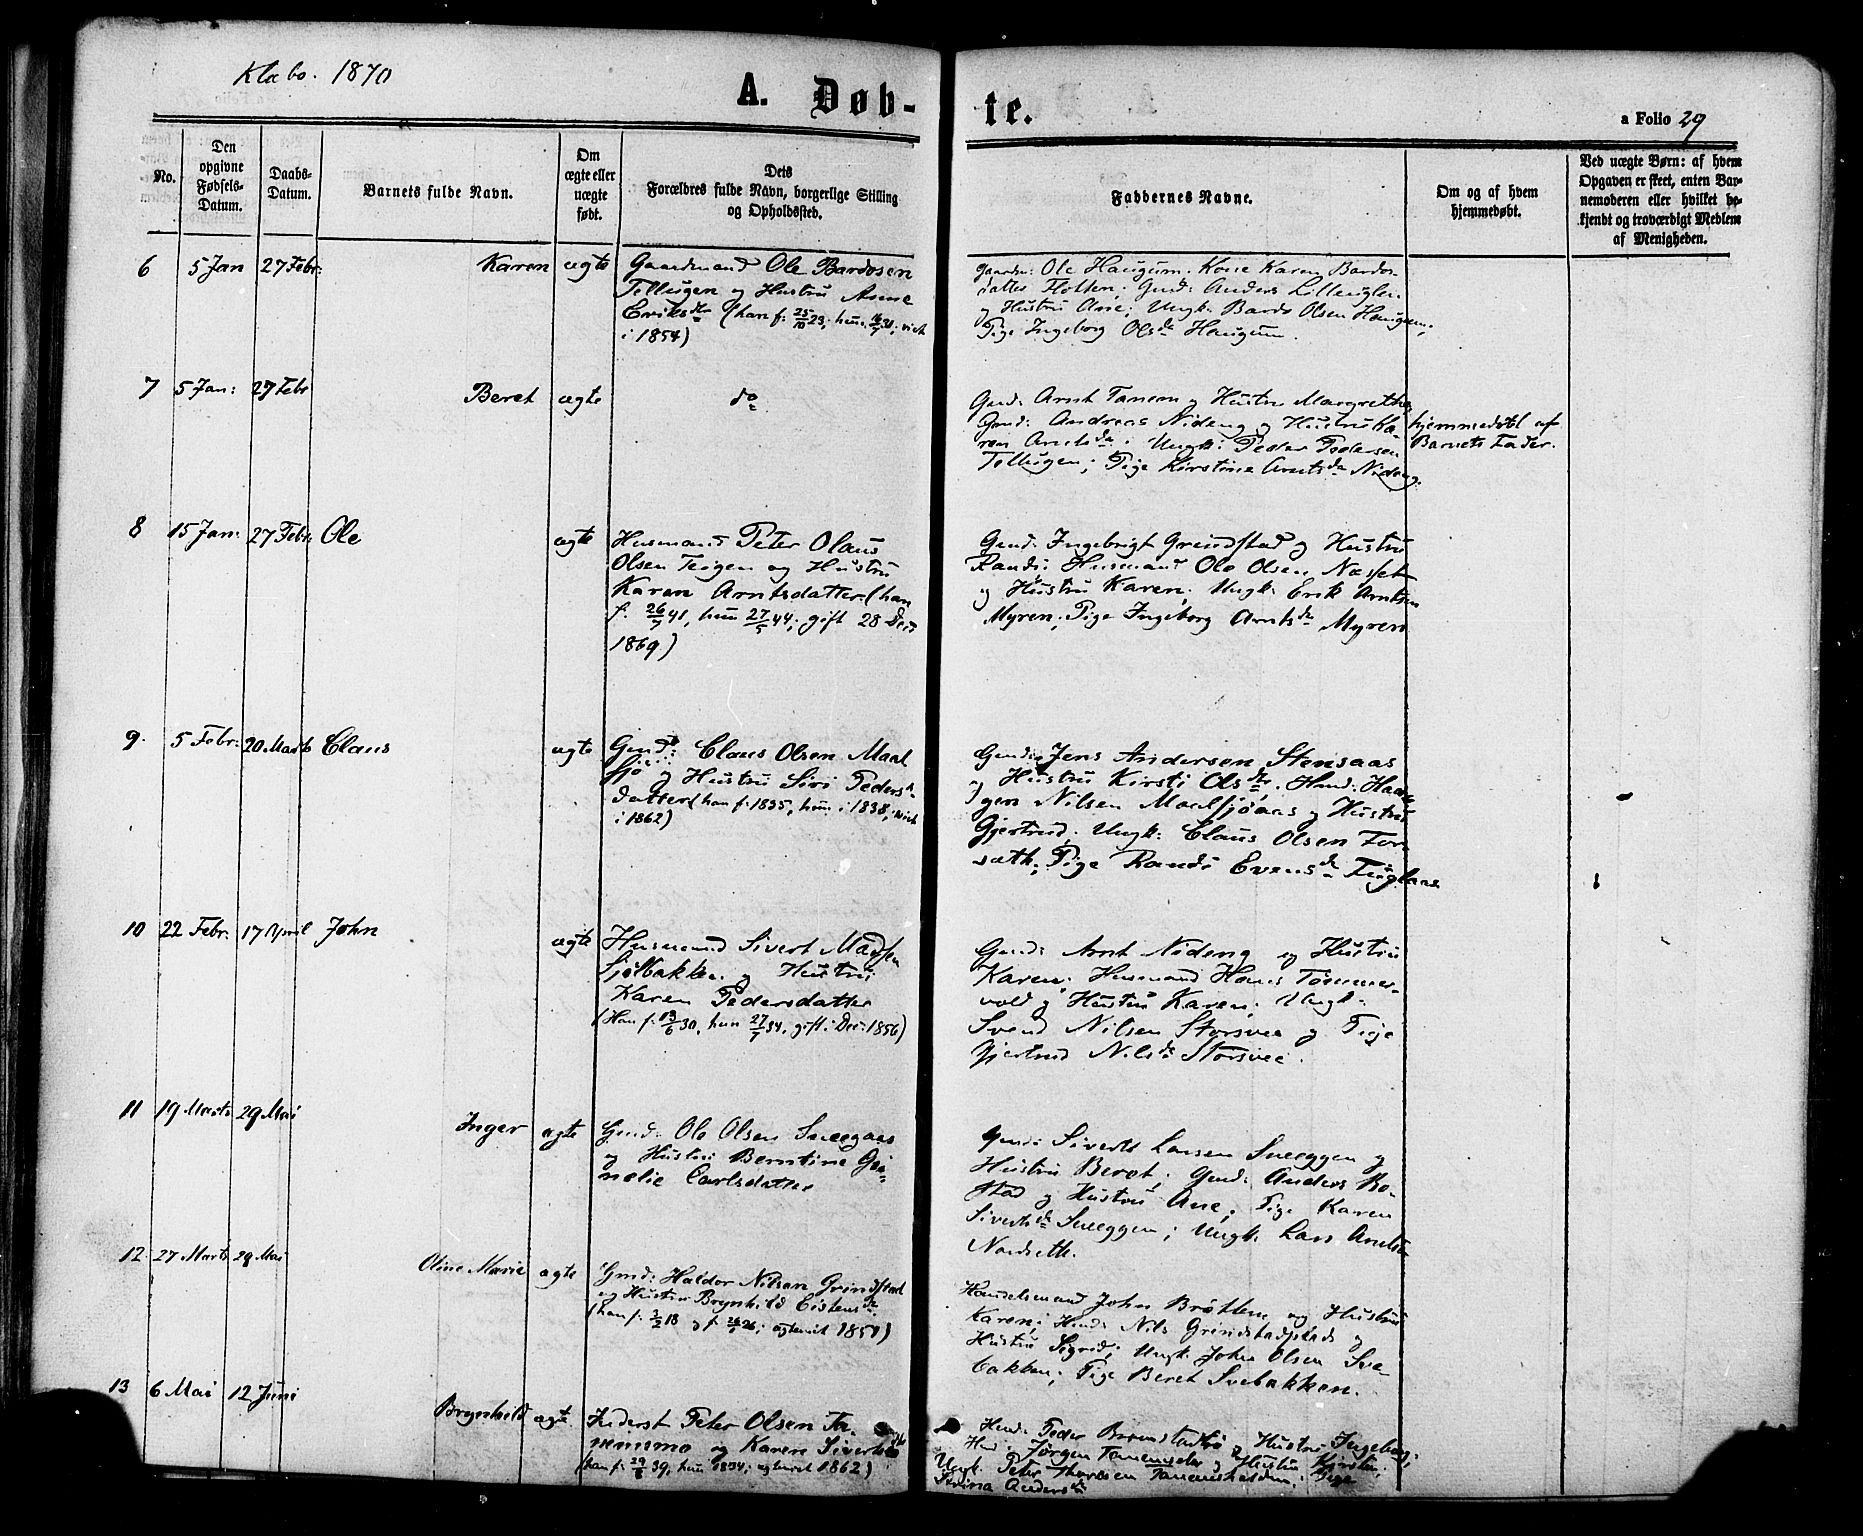 Klæbo. 1870
A. Døb-
te.
a Folio 29
No.
Den opgivne Fødsels-Datum.
Daabs-Datum.
Barnets fulde Navn.
Om ægte eller uægte født.
Dets Forældres fulde Navn, borgerlige Stilling og Opholdssted.
Faddernes Navne.
Om og af hvem hjemmedøbt.
Ved uægte Børn: af hvem Opgaven er skeet, enten Barnemoderen eller hvilket bekjendt og troværdigt Medlem af Menigheden.
6 5 Jan 27 Febr: Karen ægte
Gaardmand Ole Bardosen
Tellugen og Hustru Anne
Eriksdr (han f: 25/10 23, hun 16/9 31; viet
i 1854)
Gaardm: Ole Haugum. Kone Karen Bardos-
datter Flotten; Gmd: Anders Lilleugler
og Hustru Ane; Ungk: Bardo Olsen Haugum;
Pige Ingeborg Olsdr Haugum.
7 5 Jan: 27 Febr Beret ægte do
Gmd: Arnt Tanem og Hustru Margrethe,
Gmd: Andreas Nideng og Hustru Ka-
ren Arntsdr; Ungk: Peder Pedersen
Tellugen; Pige Kirstine Arntsdr Nideng.
hjemmedøbt af
Barnets Fader.
8 15 Jan: 27 Febr Ole ægte
Husmand Peter Olaus
Olsen Teigen og Hustru
Karen Arntsdatter (han
f. 26/7 41, hun 27/5 44; gift 28 Decr
1869)
Gmd: Ingebrigt Grendstad og Hustru
Randi: Husmand Ole Olsen Næsset
og Hustru Karen; Ungk: Erik Arntsen
Myren; Pige Ingeborg Arntsdr Myren
9. 5 Febr: 20 Marts Claus ægte
Gmd: Claus Olsen Maal
sjø og Hustru Siri Peders-
datter (han f: 1835, hun i 1838, viet
i 1862)
Gmd: Jens Andersen Stensaas
og Hustru Kirsti Olsdtr. Hmd: Haa-
gen Nilsen Maalsjøaas og Hustru
Gjertrud. Ungk: Claus Olsen For-
sæth; Pige Randi Evensdr Fuglaas
10 22 Febr: 17 April John ægte
Husmand Sivert Madsen
Sjølbakken og Hustru
Karen Pedersdatter
(Han f: 13/6 30, hun 27/7 34, gift i Dec: 1856)
Gmd: Arnt Nideng og Hustru
Karen; Husmand Hans Tømmer-
vold og Hustru Karen; Ungk:
Svend Nilsen Storsvee og Pige
Gjertrud Nilsdr Storsvee.
11 19 Marts 29 Mai Inger ægte
Gmd: Ole Olsen Sneegaas
og Hustru Berntine Gu-
nelie Carlsdatter
Gmd: Siverdt Larsen Sneeggen og
Hustru Beret; Gmd: Anders Ro-
stad og Hustru Ane; Pige Karen
Sivertsdr Sneeggen; Ungk: Lars Arntsen
Nordseth.
12 27 Marts 29 Mai Oline Marie ægte
Gmd: Haldor Nilsen Grindstad
og Hustru Brynhild Eistensdr
(han f: 3/2 18 og f. 26/1 26; ægteviet 1851)
Handelsmand John Brøttem og Hustru
Karen; Hmd: Nils Grindstadplads og
Hustru Sigrid; Ungk: John Olsen Sve-
bakken; Pige Beret Svebakken.
13 6 Mai 12 Juni Brynhild ægte
Inderst Peter Olsen Ta-
nemsmo og Karen Sivertsdtr
(han f: 29/6 39, hun 1834; ægteviet 1862)
Hmd: Peder Brøndstadsø og Hustru Ingeborg;
Hmd: Jørgen Tanem og Hustru Kirsten;
Ungk. Peter Thorsen Tanemshalden. Pige
Stina Andersdtr